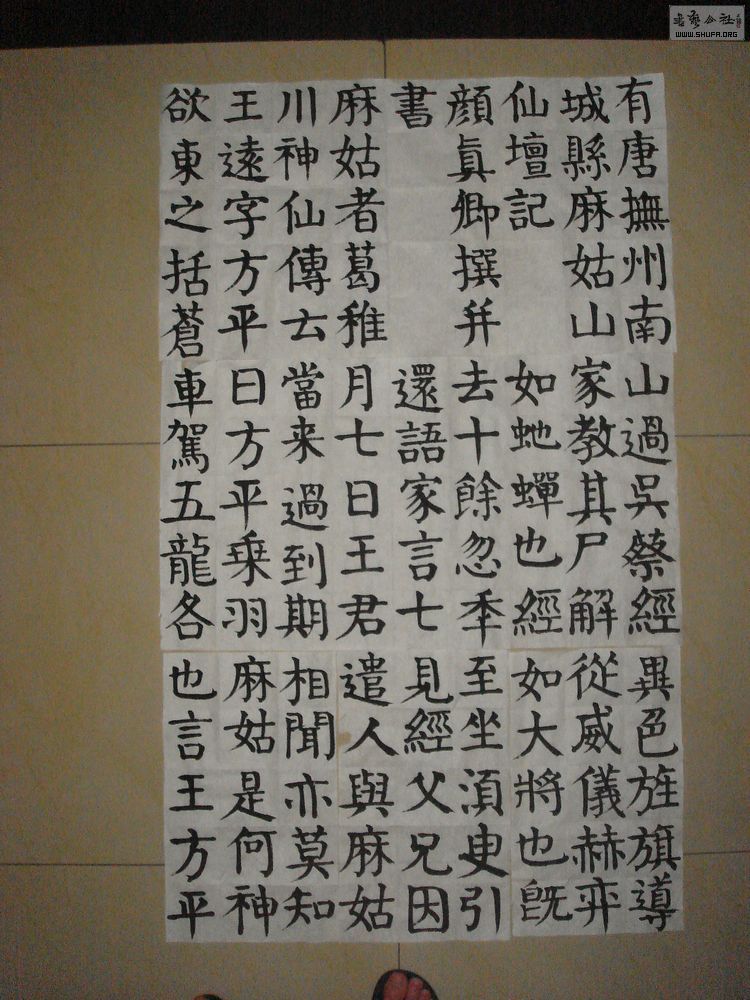 有唐撫州南
城縣麻姑山
仙壇記
顔眞卿撰并
書
麻姑者葛稚
川神仙傳云
王遠字方平
欲東之括蒼
山過吳蔡經
家教其尸解
如虵蟬也經
去十餘忽秊
還語家言七
月七日王君
當来過到期
日方平乗羽
車駕五龍各
異色旌旗導
從威儀赫弈
如大將也旣
至坐湏叟引
見經父兄因
遣人與麻姑
相聞亦莫知
麻姑是何神
也言王方平
WWW.SHUFA.ORG